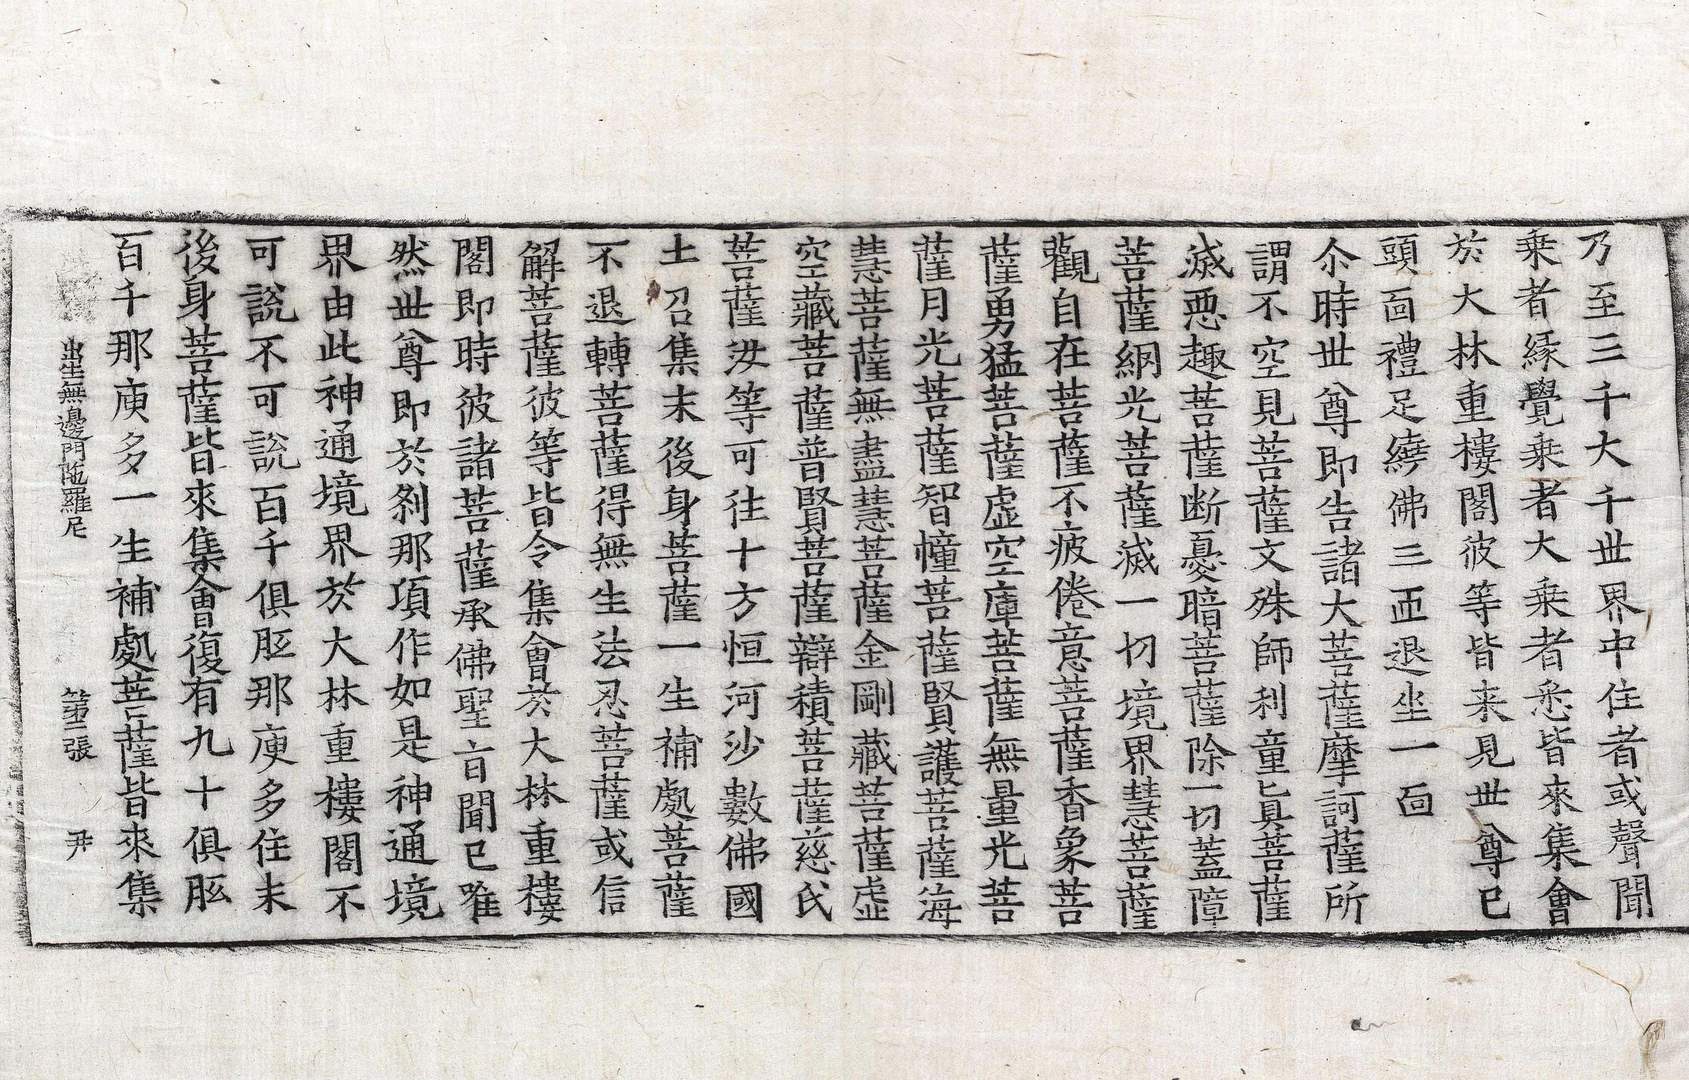 乃至三千大千世界中住者或聲聞
乗者縁覺乗者大乗者悉皆來集會
於大林重樓閣彼等皆来見世尊已
頭面禮足繞佛三匝退坐一面
尒時世尊即告諸大菩薩摩訶薩所
謂不空見菩薩文殊師利童真菩薩
滅惡趣菩薩断憂暗菩薩除一切蓋障
菩薩網光菩薩滅一切境界慧菩薩
觀自在菩薩不疲倦意菩薩香象菩
薩勇猛菩薩虛空庫菩薩無量光菩
薩月光菩薩智幢菩薩賢護菩薩海
慧菩薩無盡慧菩薩金剛藏菩薩虛
空藏菩薩普賢菩薩辯積菩薩慈氏
菩薩汝等可往十方恒河沙數佛國
土召集末後身菩薩一生補處菩薩
不退轉菩薩得無生法忍菩薩或信
解菩薩彼等皆令集會於大林重樓
閣即時彼諸菩薩承佛聖言聞已唯
然世尊即於刹那項作如是神通境
界由此神通境界於大林重樓閣不
可說不可說百千俱胝那庾多住末
後身菩薩皆來集會復有九十俱胝
百千那庾多一生補處菩薩皆來集
出生無邊門陁羅尼 第二張 尹